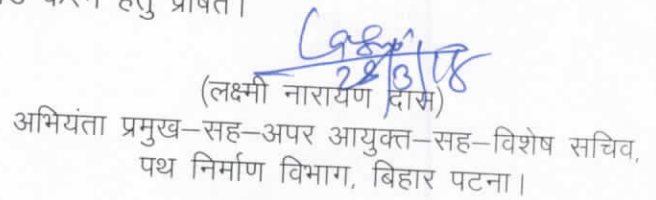 करने हेतु प्रेषित।
28/3/18
(लक्ष्मी नारायण दास)
अभियंता प्रमुख–सह–अपर आयुक्त–सह–विशेष सचिव,
पथ निर्माण विभाग, बिहार पटना।